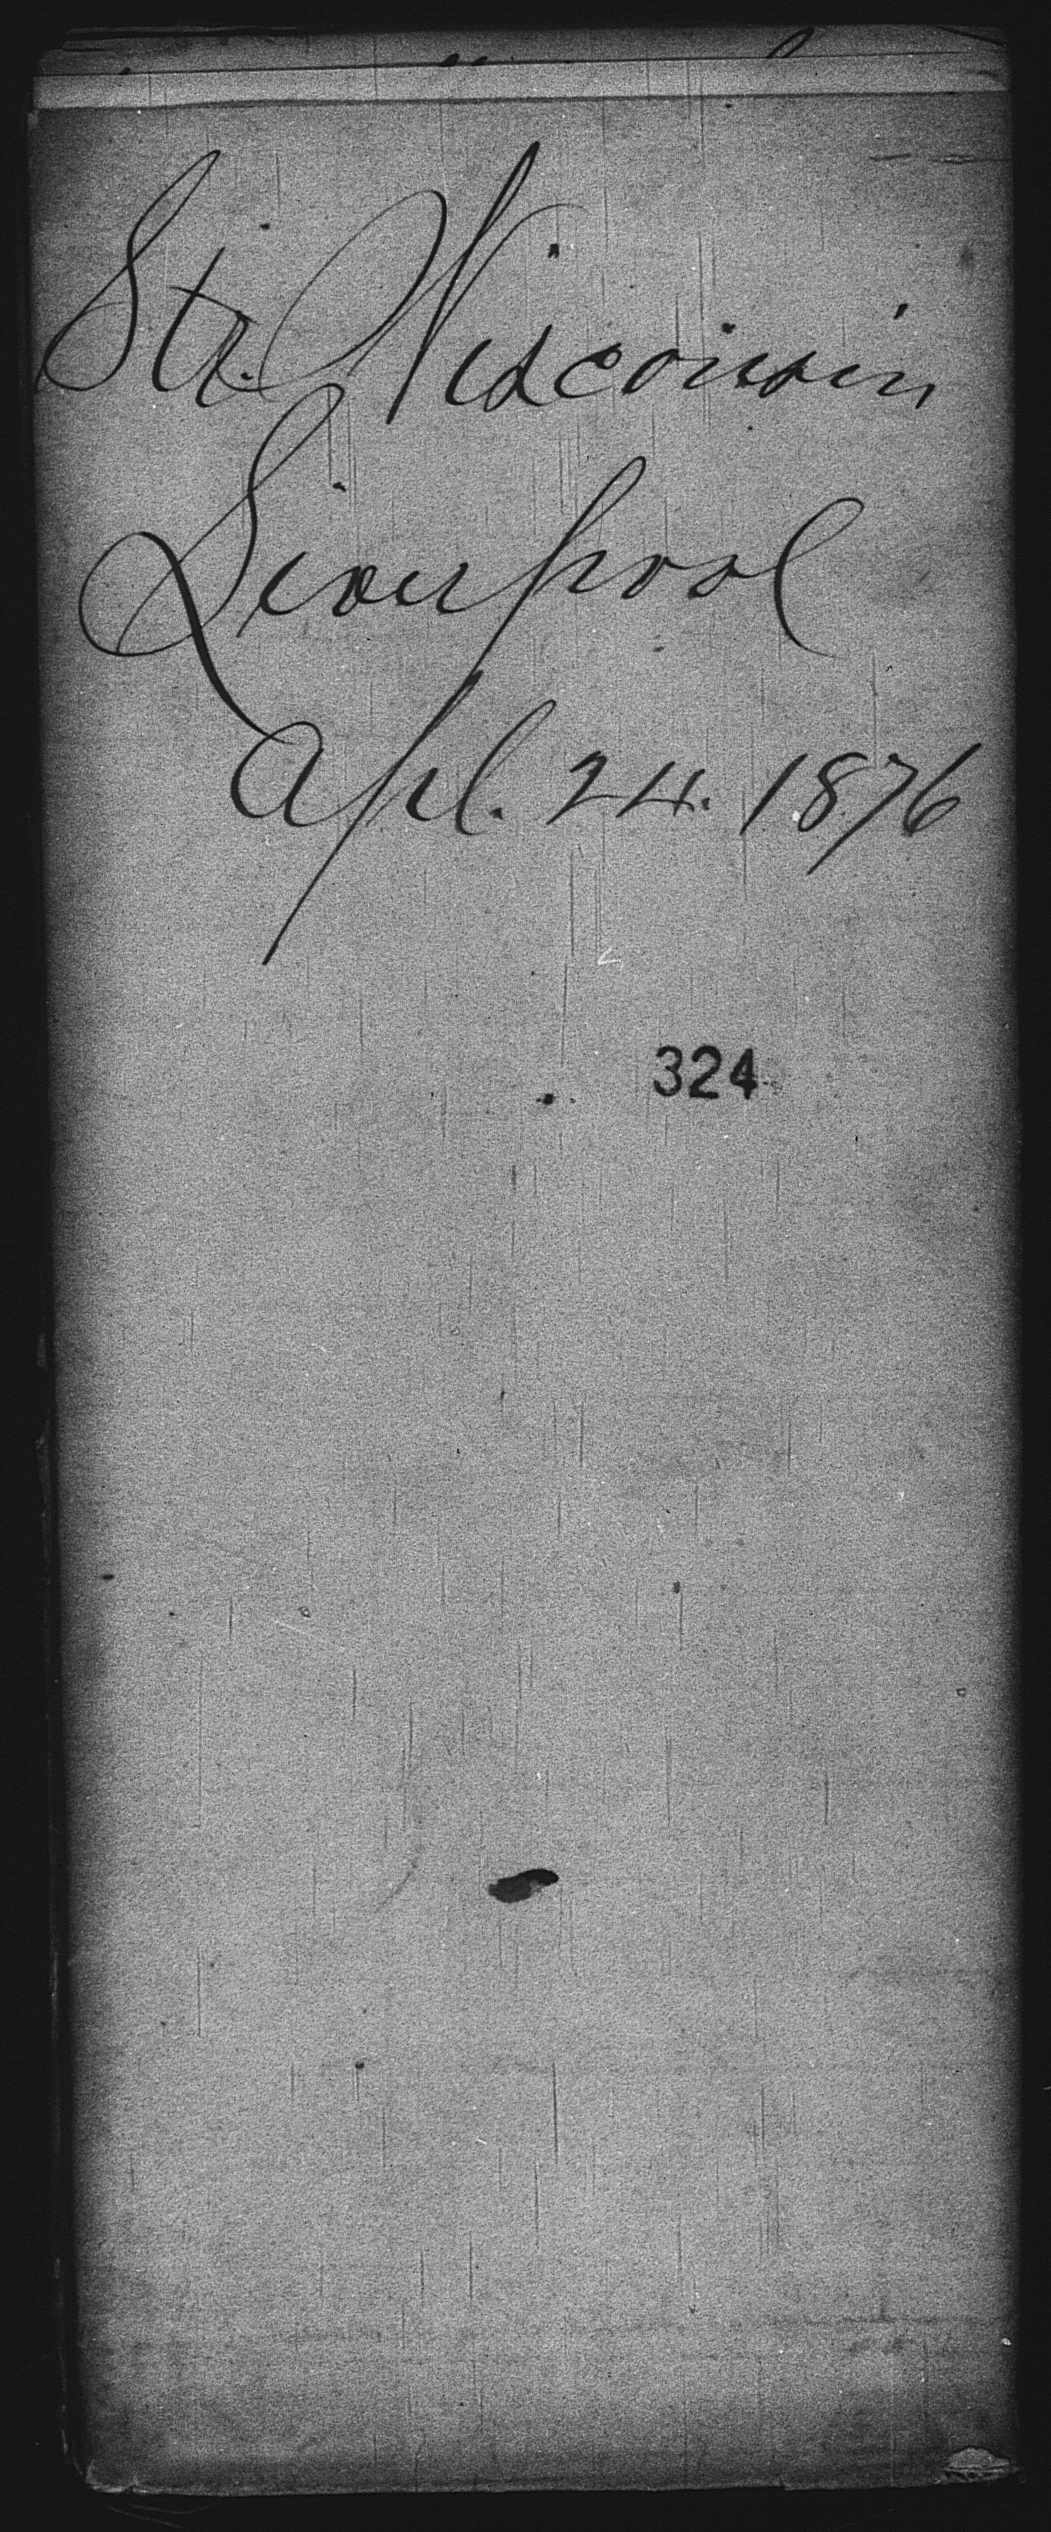 Str. Wisconsin
Liverpool
Apl. 24. 1876
324